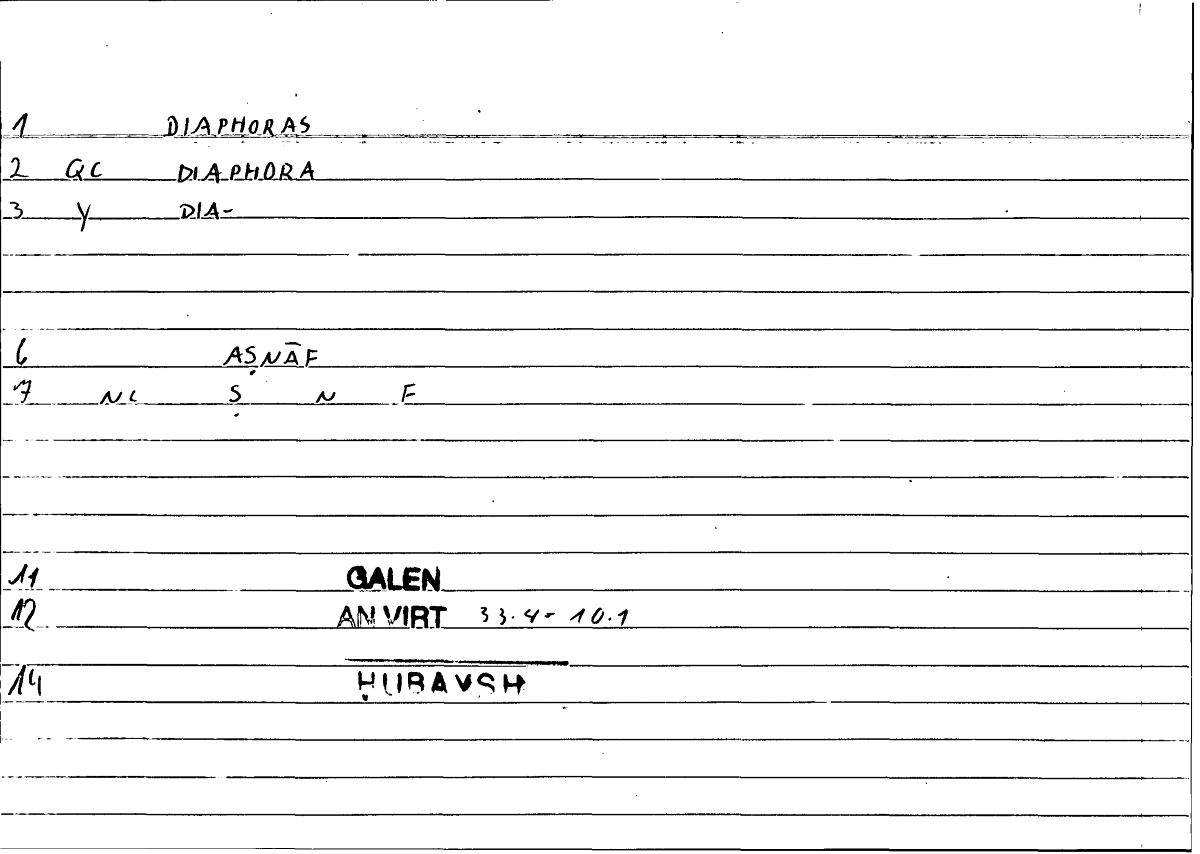 1 DIAPHORAS
2 QC DIAPHORA
3 Y DIA-
6 AṢNĀF
7 NC Ṣ N F
11 GALEN
12 AN VIRT 33.4-10.1
14 ḤUBAYSH